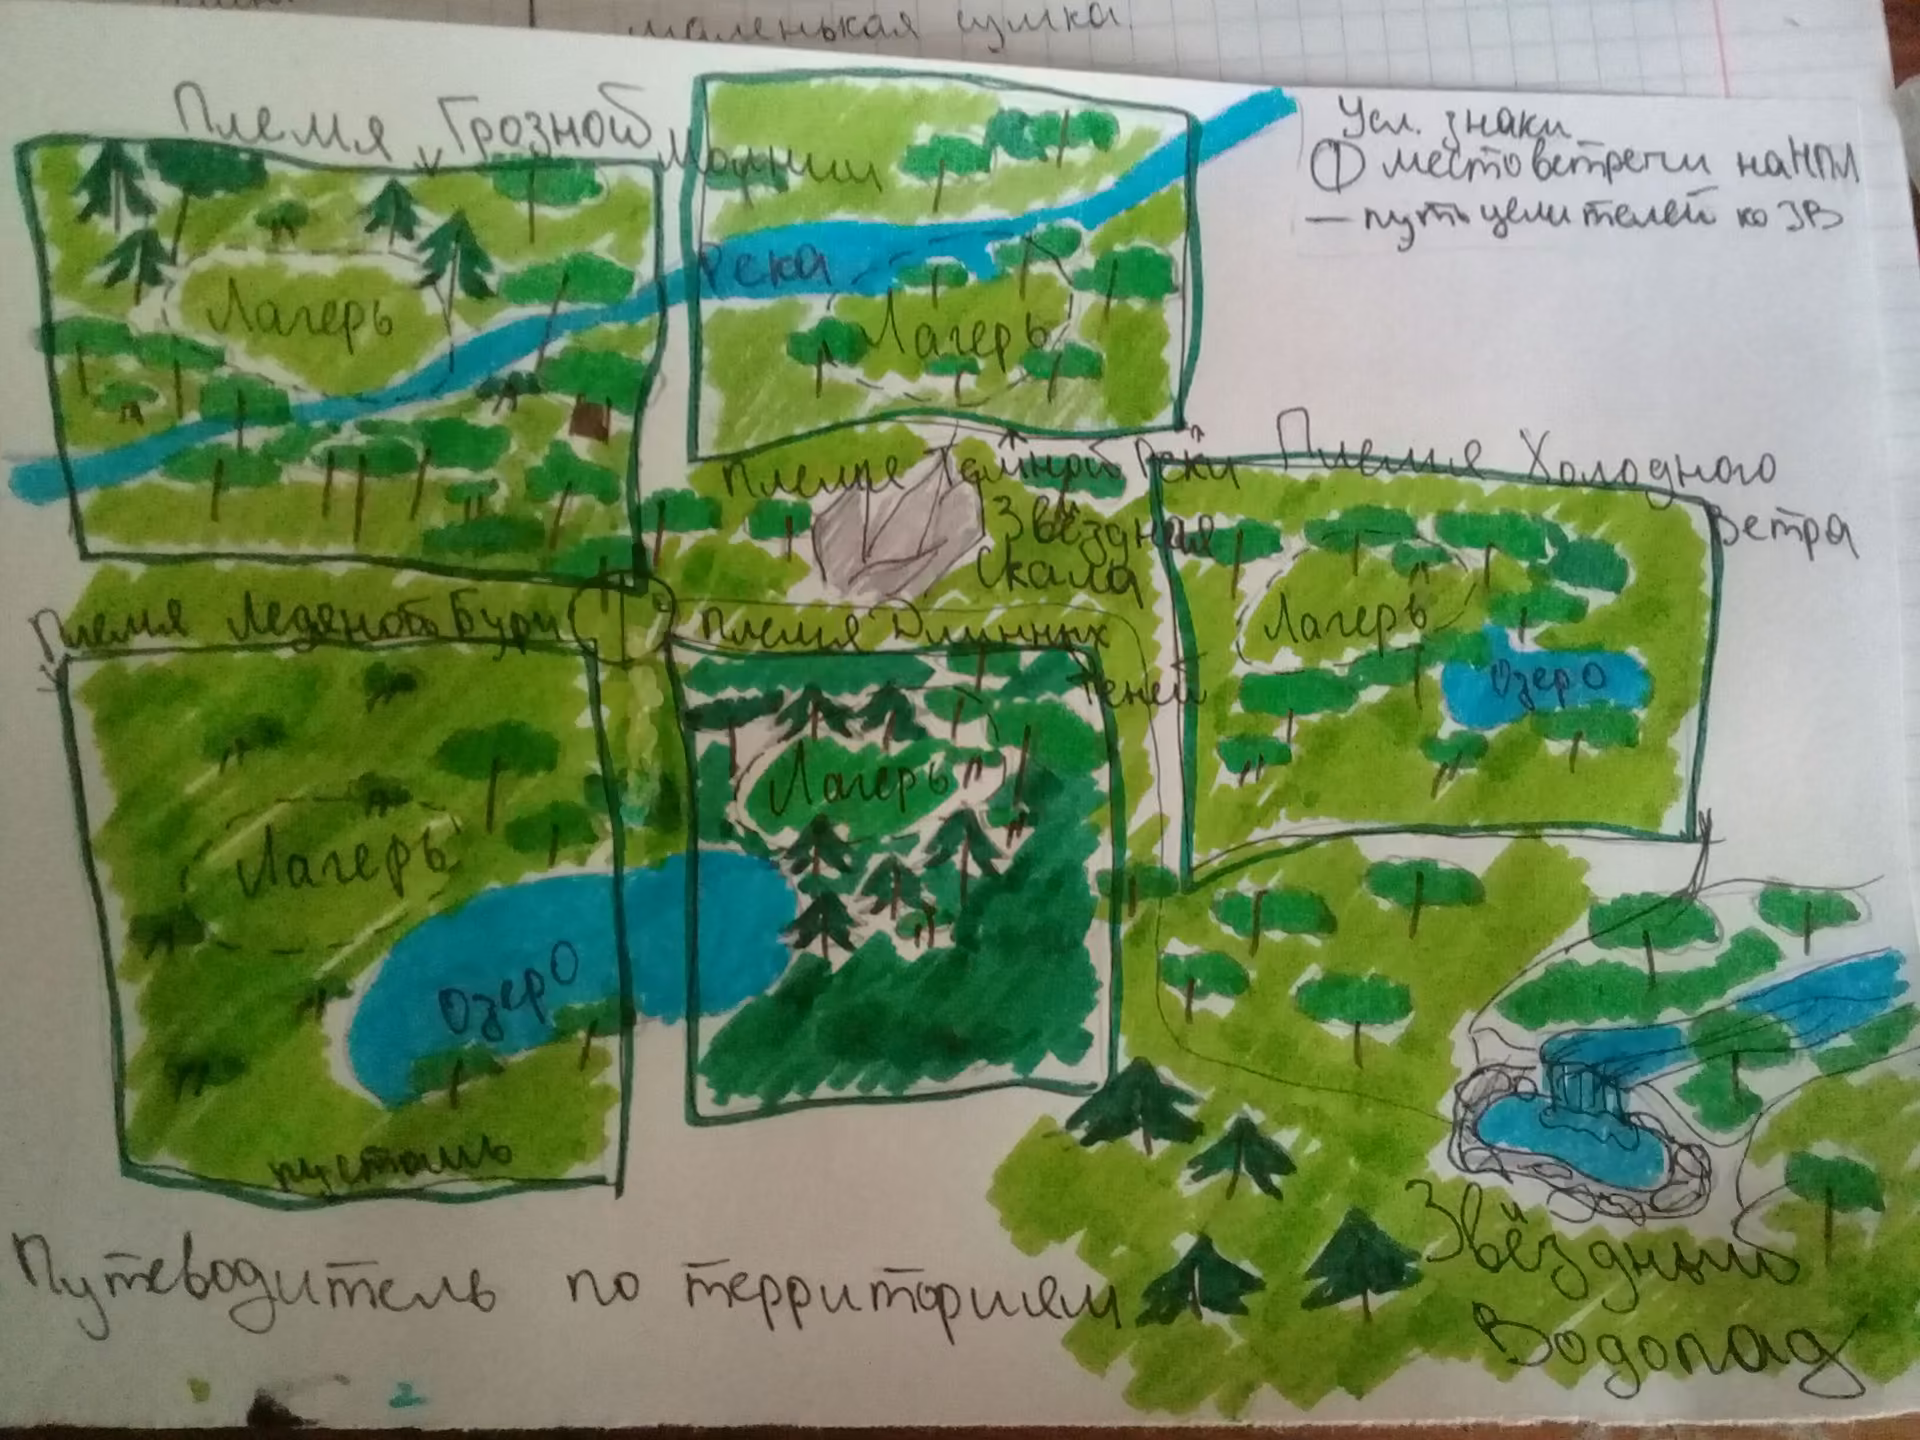 маленькая сумка.
Племя Грозной Молнии
Усл. знаки
место встречи на НПЛ
— путь целителей ко ЗВ
Река
Лагерь
Лагерь
Племя Тайной Реки
Племя Холодного
Ветра
Звёздная
Скала
Лагерь
Озеро
Племя Ледяной Бури
Племя Длинных
Теней
Лагерь
Лагерь
Озеро
пустошь
Звёздный
Водопад
Путеводитель по территориям